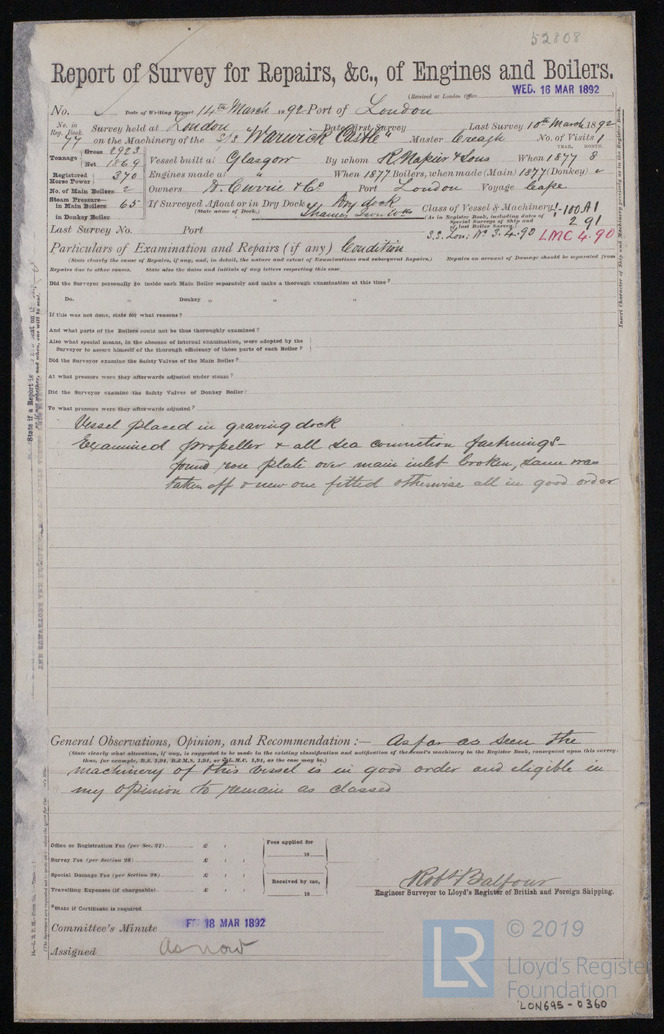 52808
Report of Survey for Repairs, &c., of Engines and Boilers.
(Received at London Office WED. 16 MAR 1892
No. Date of Writing Report 14th March 1892 Port of London
No. in Reg. Book. 77 Survey held at London Date: First Survey Last Survey 10th March 1892
on the Machinery of the S/S "Warwick Castle" Master Creagh No. of Visits 1
YEAR. MONTH.
Tonnage Gross 2923 Net 1869 Vessel built at Glasgow By whom R Napier & Sons When 1877 8
Registered Horse Power 370 Engines made at " When 1877 Boilers, when made (Main) 1877 (Donkey)
No. of Main Boilers 2 Owners D. Currie & Co Port London Voyage Cape
Steam Pressure in Main Boilers 65 If Surveyed Afloat or in Dry Dock Dry dock
(State name of Dock.) Thames Iron Wks
Class of Vessel & Machinery 100 A1
(As in Register Book, including dates of Special Surveys of Ship and of last Boiler Survey) 2 91
in Donkey Boiler
Last Survey No. Port S.S. Lon. No 3. 4.90 LMC 4.90
Particulars of Examination and Repairs (if any) Condition
(State clearly the cause of Repairs, if any, and, in detail, the nature and extent of Examinations and subsequent Repairs.) Repairs on account of Damage should be separated from
Repairs due to other causes. State also the dates and initials of any letters respecting this case
Did the Surveyor personally go inside each Main Boiler separately and make a thorough examination at this time?
Do. " Donkey " " "
If this was not done, state for what reasons?
And what parts of the Boilers could not be thus thoroughly examined?
Also what special means, in the absence of internal examination, were adopted by the
Surveyor to assure himself of the thorough efficiency of those parts of each Boiler?
Did the Surveyor examine the Safety Valves of the Main Boiler?
At what pressure were they afterwards adjusted under steam?
Did the Surveyor examine the Safety Valves of Donkey Boiler?
To what pressure were they afterwards adjusted?
Vessel placed in graving dock
Examined propeller & all sea connection fastnings-
found rose plate over main inlet broken, same was
taken off & new one fitted otherwise all in good order
General Observations, Opinion, and Recommendation :— As far as seen the
(State clearly what alteration, if any, is suggested to be made in the existing classification and notification of the vessel's machinery in the Register Book, consequent upon this survey:
thus, for example, B.S. 2,91, B.&M.S. 2,91, or L.M.C. 2,91, as the case may be.)
machinery of this vessel is in good order and eligible in
my opinion to remain as classed
Office or Registration Fee (per Sec. 27) £ : :
Survey Fee (per Section 28) £ : :
Special Damage Fee (per Section 28) £ : :
Travelling Expenses (if chargeable) £ : :
Fees applied for
18
Received by me,
18
Robt Balfour
Engineer Surveyor to Lloyd's Register of British and Foreign Shipping.
*State if Certificate is required
Committee's Minute FRI 18 MAR 1892
Assigned As now
LR
© 2019
Lloyd's Register
Foundation
LON695-0360